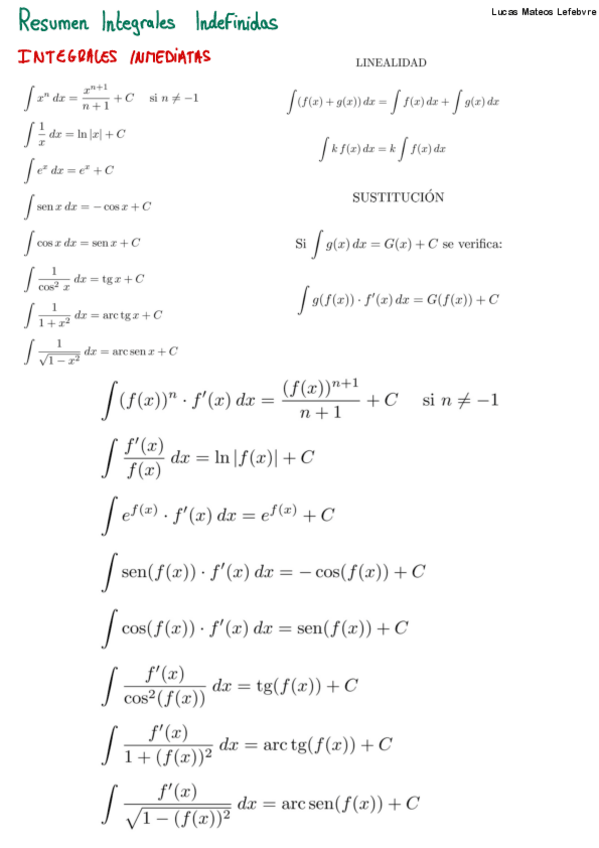 Lucas Mateos Lefebvre
Resumen Integrales Indefinidas
INTEGRALES INMEDIATAS
∫ xⁿ dx = xⁿ⁺¹/(n + 1) + C si n ≠ −1
∫ 1/x dx = ln |x| + C
∫ eˣ dx = eˣ + C
∫ sen x dx = − cos x + C
∫ cos x dx = sen x + C
∫ 1/cos² x dx = tg x + C
∫ 1/(1 + x²) dx = arc tg x + C
∫ 1/√(1 − x²) dx = arc sen x + C
LINEALIDAD
∫ (f(x) + g(x)) dx = ∫ f(x) dx + ∫ g(x) dx
∫ k f(x) dx = k ∫ f(x) dx
SUSTITUCIÓN
Si ∫ g(x) dx = G(x) + C se verifica:
∫ g(f(x)) · f′(x) dx = G(f(x)) + C
∫ (f(x))ⁿ · f′(x) dx = (f(x))ⁿ⁺¹/(n + 1) + C si n ≠ −1
∫ f′(x)/f(x) dx = ln |f(x)| + C
∫ e^f(x) · f′(x) dx = e^f(x) + C
∫ sen(f(x)) · f′(x) dx = − cos(f(x)) + C
∫ cos(f(x)) · f′(x) dx = sen(f(x)) + C
∫ f′(x)/cos²(f(x)) dx = tg(f(x)) + C
∫ f′(x)/(1 + (f(x))²) dx = arc tg(f(x)) + C
∫ f′(x)/√(1 − (f(x))²) dx = arc sen(f(x)) + C